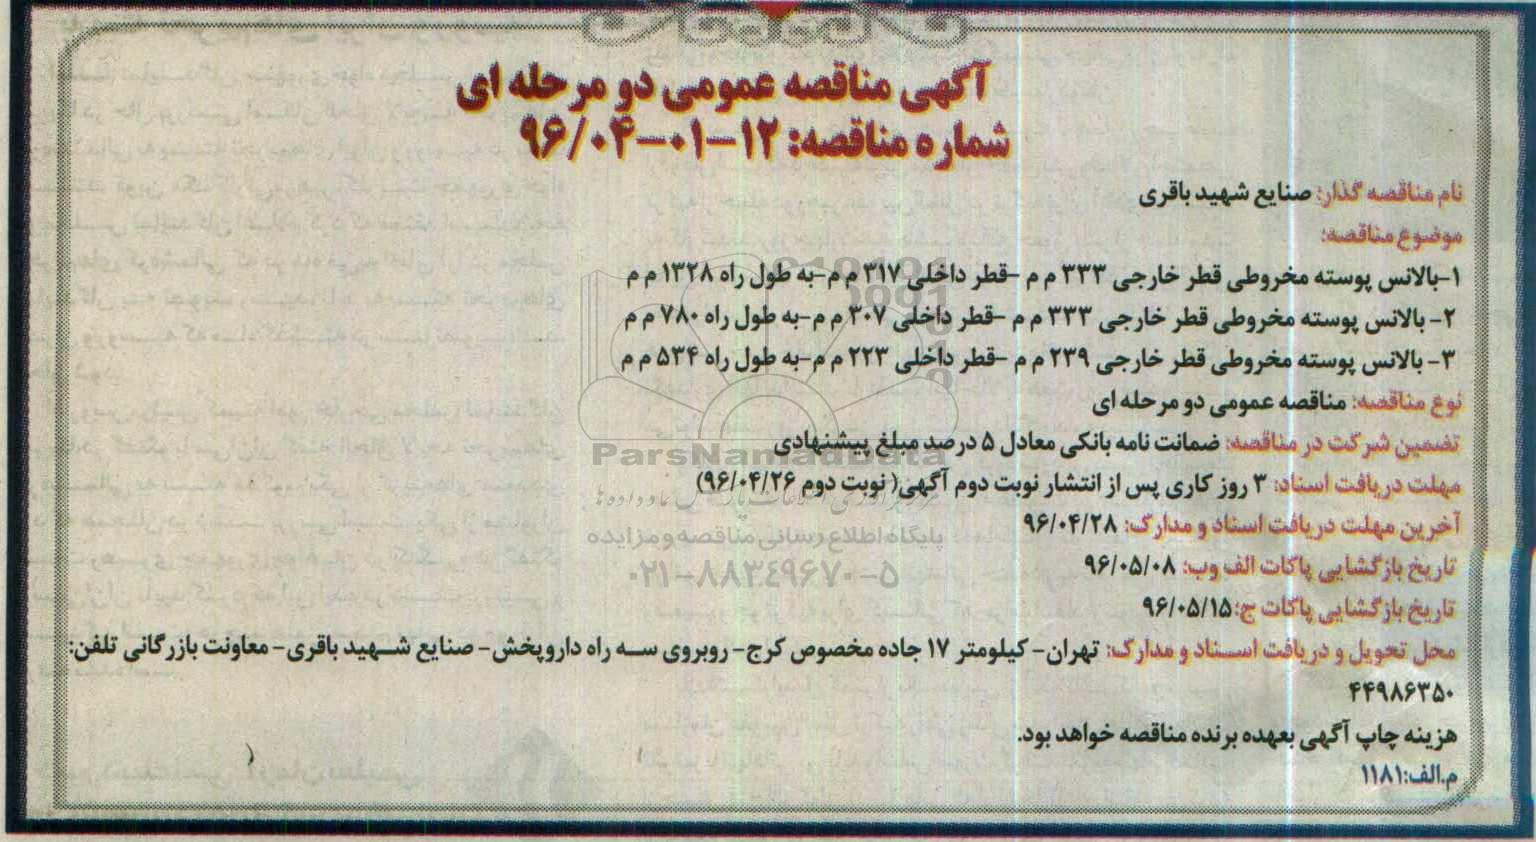 آگهی مناقصه عمومی دو مرحله ای
شماره مناقصه: ۱۲-۰۱-۹۶/۰۴
نام مناقصه گذار: صنایع شهید باقری
موضوع مناقصه:
۱-بالانس پوسته مخروطی قطر خارجی ۳۳۳ م م -قطر داخلی ۳۱۷ م م-به طول راه ۱۳۲۸ م م
۲- بالانس پوسته مخروطی قطر خارجی ۳۳۳ م م -قطر داخلی ۳۰۷ م م-به طول راه ۷۸۰ م م
۳- بالانس پوسته مخروطی قطر خارجی ۲۳۹ م م -قطر داخلی ۲۲۳ م م-به طول راه ۵۳۴ م م
نوع مناقصه: مناقصه عمومی دو مرحله ای
تضمین شرکت در مناقصه: ضمانت نامه بانکی معادل ۵ درصد مبلغ پیشنهادی
ParsNamadData
مهلت دریافت اسناد: ۳ روز کاری پس از انتشار نوبت دوم آگهی( نوبت دوم ۹۶/۰۴/۲۶)
آخرین مهلت دریافت اسناد و مدارک: ۹۶/۰۴/۲۸
پایگاه اطلاع رسانی مناقصه و مزایده
تاریخ بازگشایی پاکات الف وب: ۹۶/۰۵/۰۸
۰۲۱-۸۸۳۴۹۶۷۰-۵
تاریخ بازگشایی پاکات ج:۹۶/۰۵/۱۵
محل تحویل و دریافت اسناد و مدارک: تهران- کیلومتر ۱۷ جاده مخصوص کرج- روبروی سه راه داروپخش- صنایع شهید باقری- معاونت بازرگانی تلفن:
۴۴۹۸۶۳۵۰
هزینه چاپ آگهی بعهده برنده مناقصه خواهد بود.
م.الف:۱۱۸۱